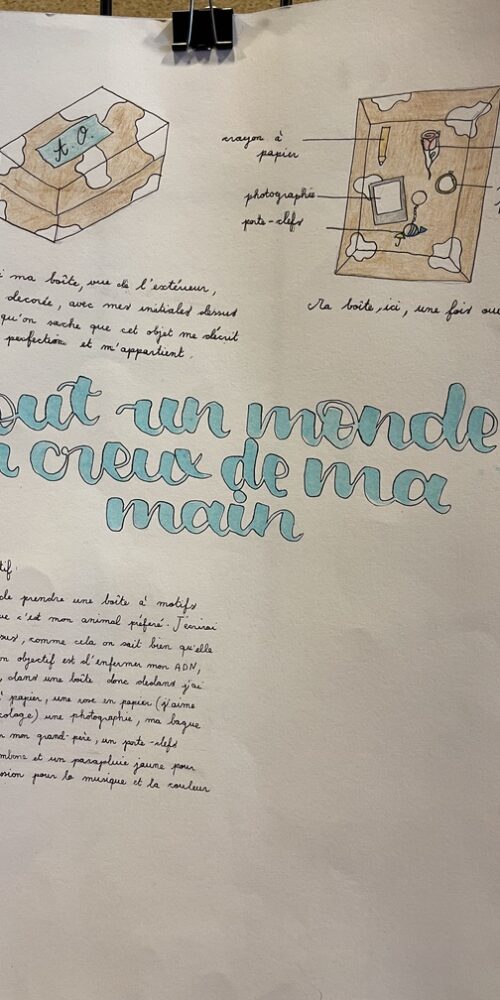 A. O.
crayon à
papier
photographie
porte-clefs
ma boîte, vue de l'extérieur,
decorée, avec mes initiales dessus
qu'on sache que cet objet me décrit
perfection et m'appartient.
Ma boîte, ici, une fois
out un monde
creux de ma
main
de prendre une boîte à motifs
c'est mon animal préféré. J'écrirai
, comme cela on sait bien qu'elle
objectif est d'enfermer mon ADN,
, dans une boîte donc dedans j'ai
papier, une rose en papier (j'aime
) une photographie, ma bague
mon grand-père, un porte-clefs
et un parapluie jaune pour
pour la musique et la couleur